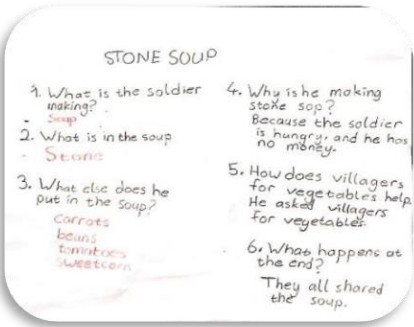 STONE SOUP
1. What is the soldier
making?
- Soup
2. What is in the soup
- Stone
3. What else does he
put in the soup?
carrots
beans
tomatoes
sweetcorn
4. Why is he making
stone sop?
Because the soldier
is hungry, and he has
no money.
5. How does villagers
for vegetables help
He asked villagers
for vegetables.
6. What happens at
the end?
They all shared
the soup.